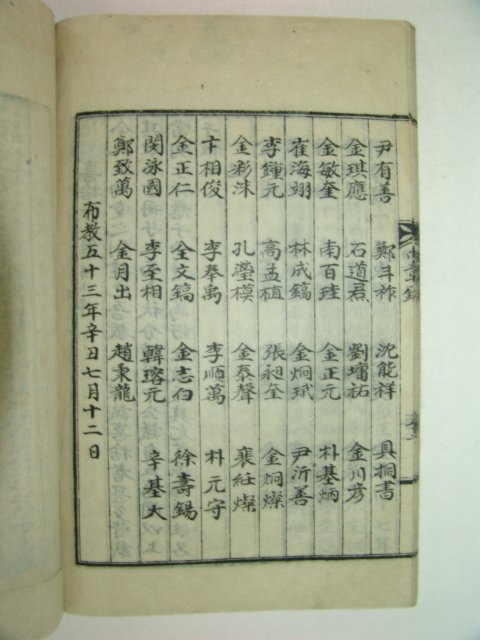 尹有善 鄭斗祚 沈能祥 具桐書
金琪應 石道君 劉墉祐 金川彦
金敏奎 南百珪 金正元 朴基炳
崔海翊 林成鎬 金炯珷 尹沂善
李鍾元 高孟植 張昶奎 金炯燦
金彩洙 孔瀅模 金泰聲 裵紝燦
卞相俊 李奉禹 李順萬 朴元守
金正仁 全文鎬 金志白 徐壽錫
閔泳國 李圣相 韓瑢元 辛基大
鄭致萬 金月出 趙東龍
布敎五十三年辛丑七月十二日